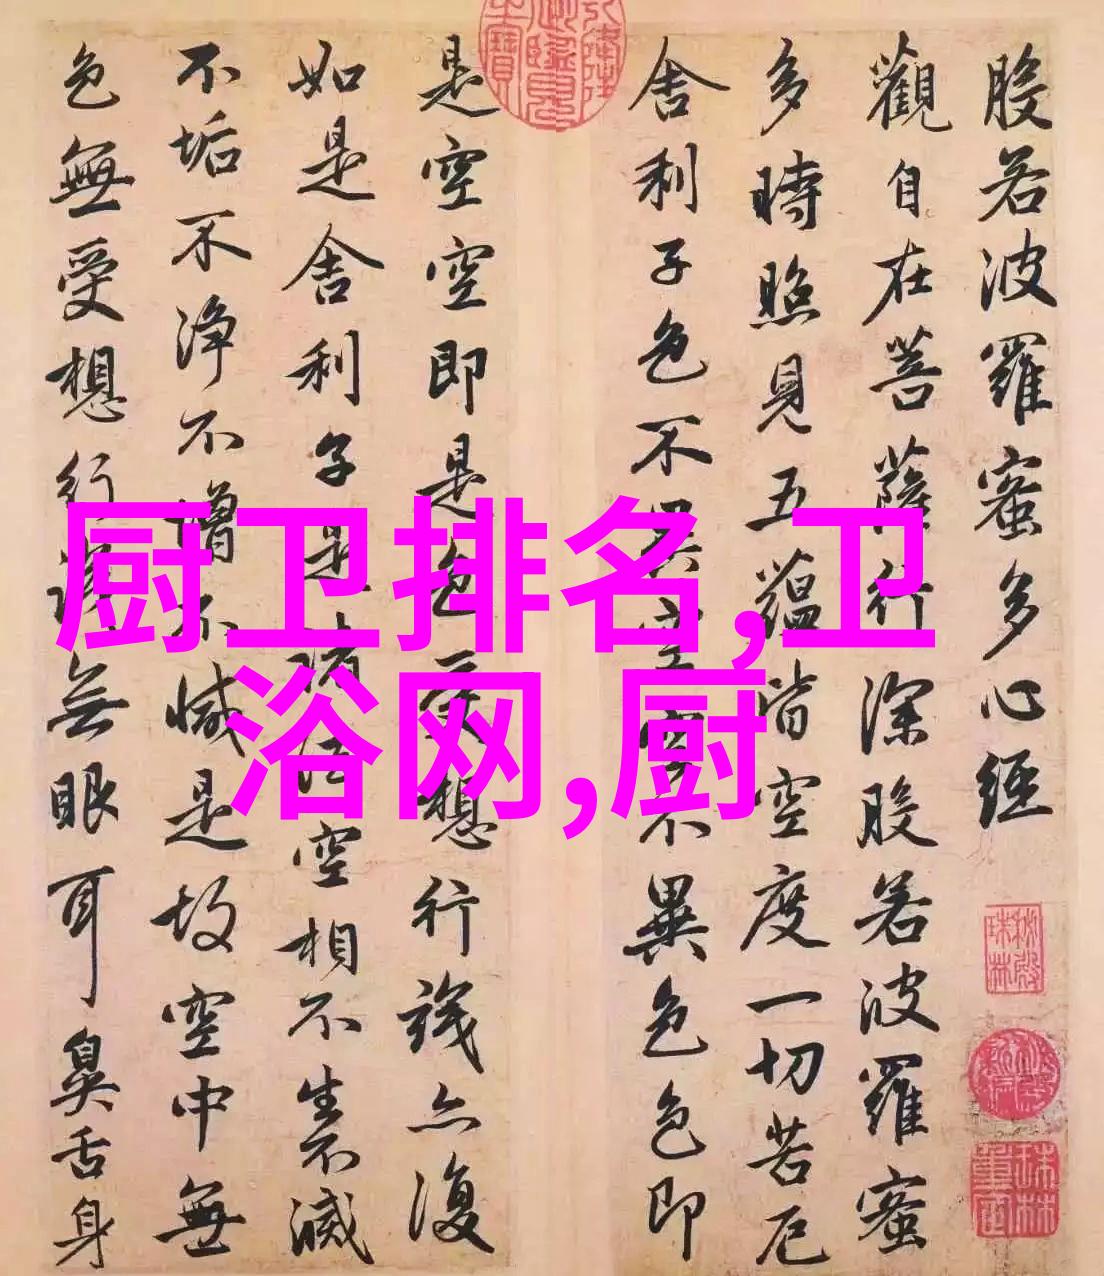 般若波羅蜜多心經
觀自在菩薩行深般若波羅蜜
多時照見五蘊皆空度一切苦厄
舍利子色不異空空不異色色即
是空空即是色受想行識亦復
如是舍利子是諸法空相不生不滅
不垢不净不增不減是故空中無
色無受想行識無眼耳鼻舌身
厨卫排名,卫
浴网,厨
秘殿珠林